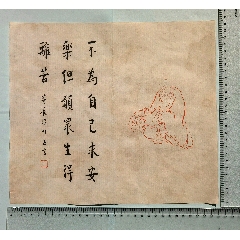 不為自己求安
樂但願眾生得
離苦